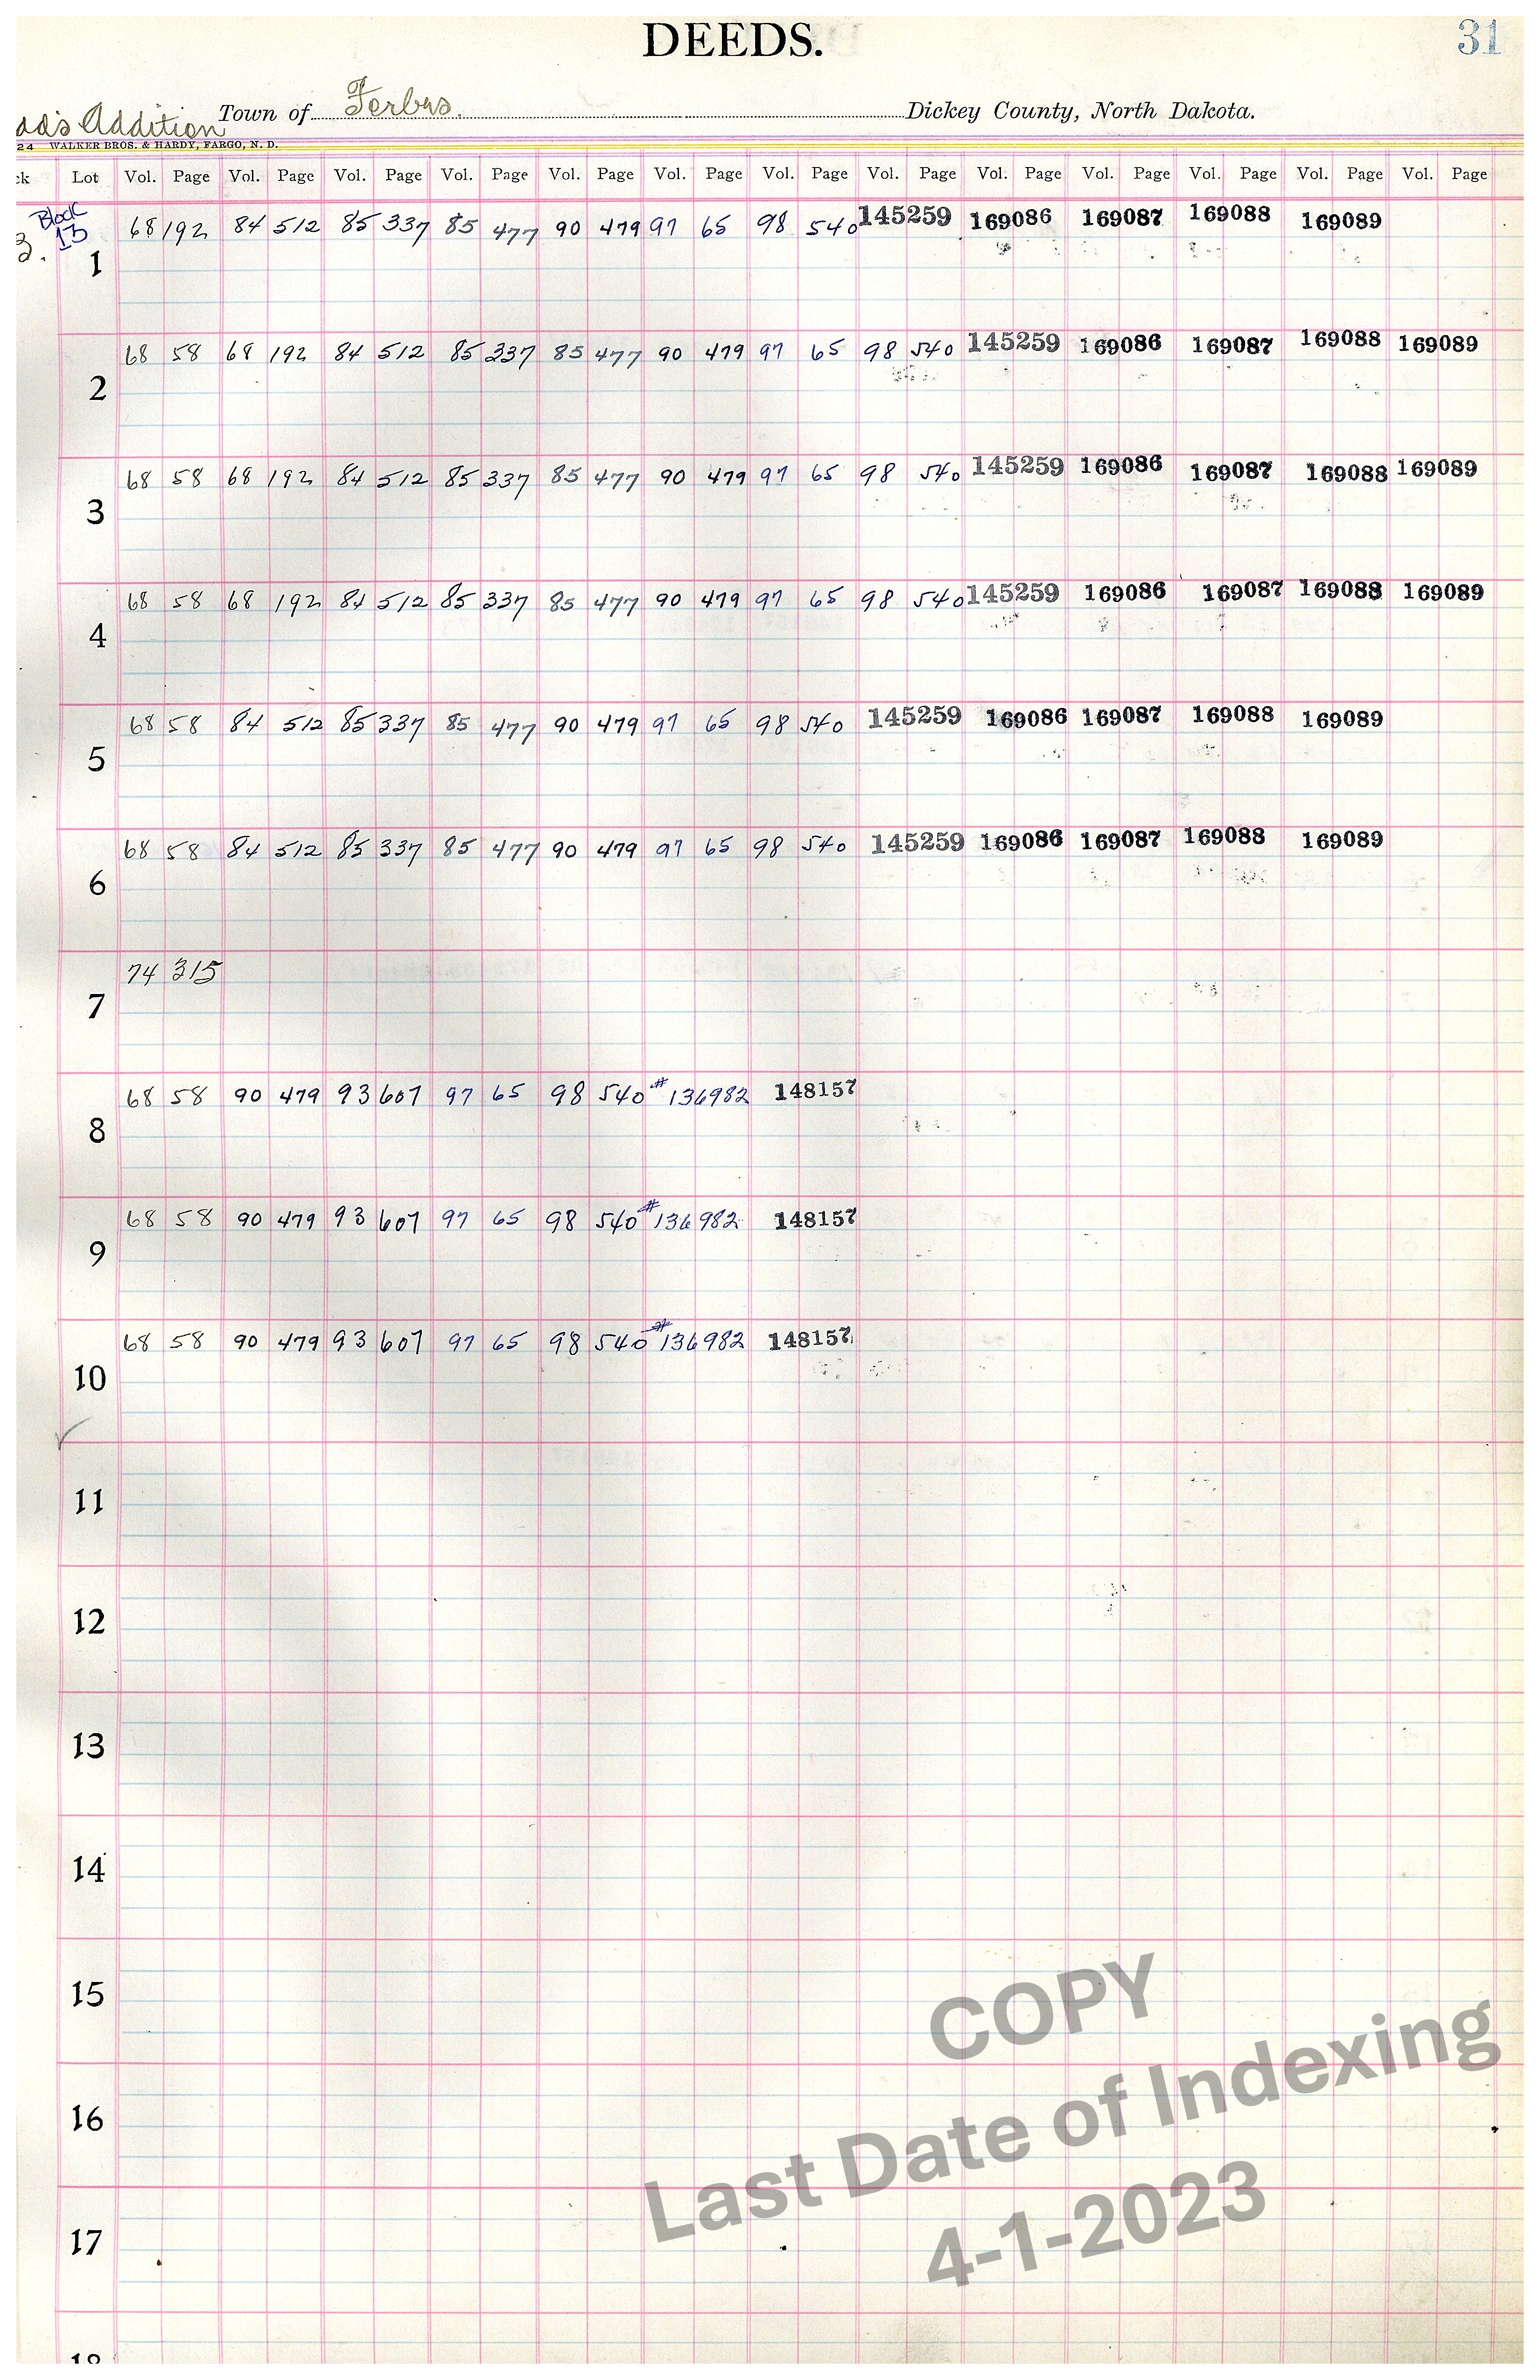 DEEDS. 31
Addition Town of Forbes. Dickey County, North Dakota.
24 WALKER BROS. & HARDY, FARGO, N. D.
ck Lot Vol. Page Vol. Page Vol. Page Vol. Page Vol. Page Vol. Page Vol. Page Vol. Page Vol. Page Vol. Page Vol. Page Vol. Page Vol. Page
Block
13
3.
68 192 84 512 85 337 85 477 90 479 97 65 98 540 145259 169086 169087 169088 169089
1
68 58 68 192 84 512 85 337 85 477 90 479 97 65 98 540 145259 169086 169087 169088 169089
2
68 58 68 192 84 512 85 337 85 477 90 479 97 65 98 540 145259 169086 169087 169088 169089
3
68 58 68 192 84 512 85 337 85 477 90 479 97 65 98 540 145259 169086 169087 169088 169089
4
68 58 84 512 85 337 85 477 90 479 97 65 98 540 145259 169086 169087 169088 169089
5
68 58 84 512 85 337 85 477 90 479 97 65 98 540 145259 169086 169087 169088 169089
6
74 315
7
68 58 90 479 93 607 97 65 98 540 #136982 148157
8
68 58 90 479 93 607 97 65 98 540 #136982 148157
9
68 58 90 479 93 607 97 65 98 540 #136982 148157
10
11
12
13
14
15
16
17
18
COPY
Last Date of Indexing
4-1-2023